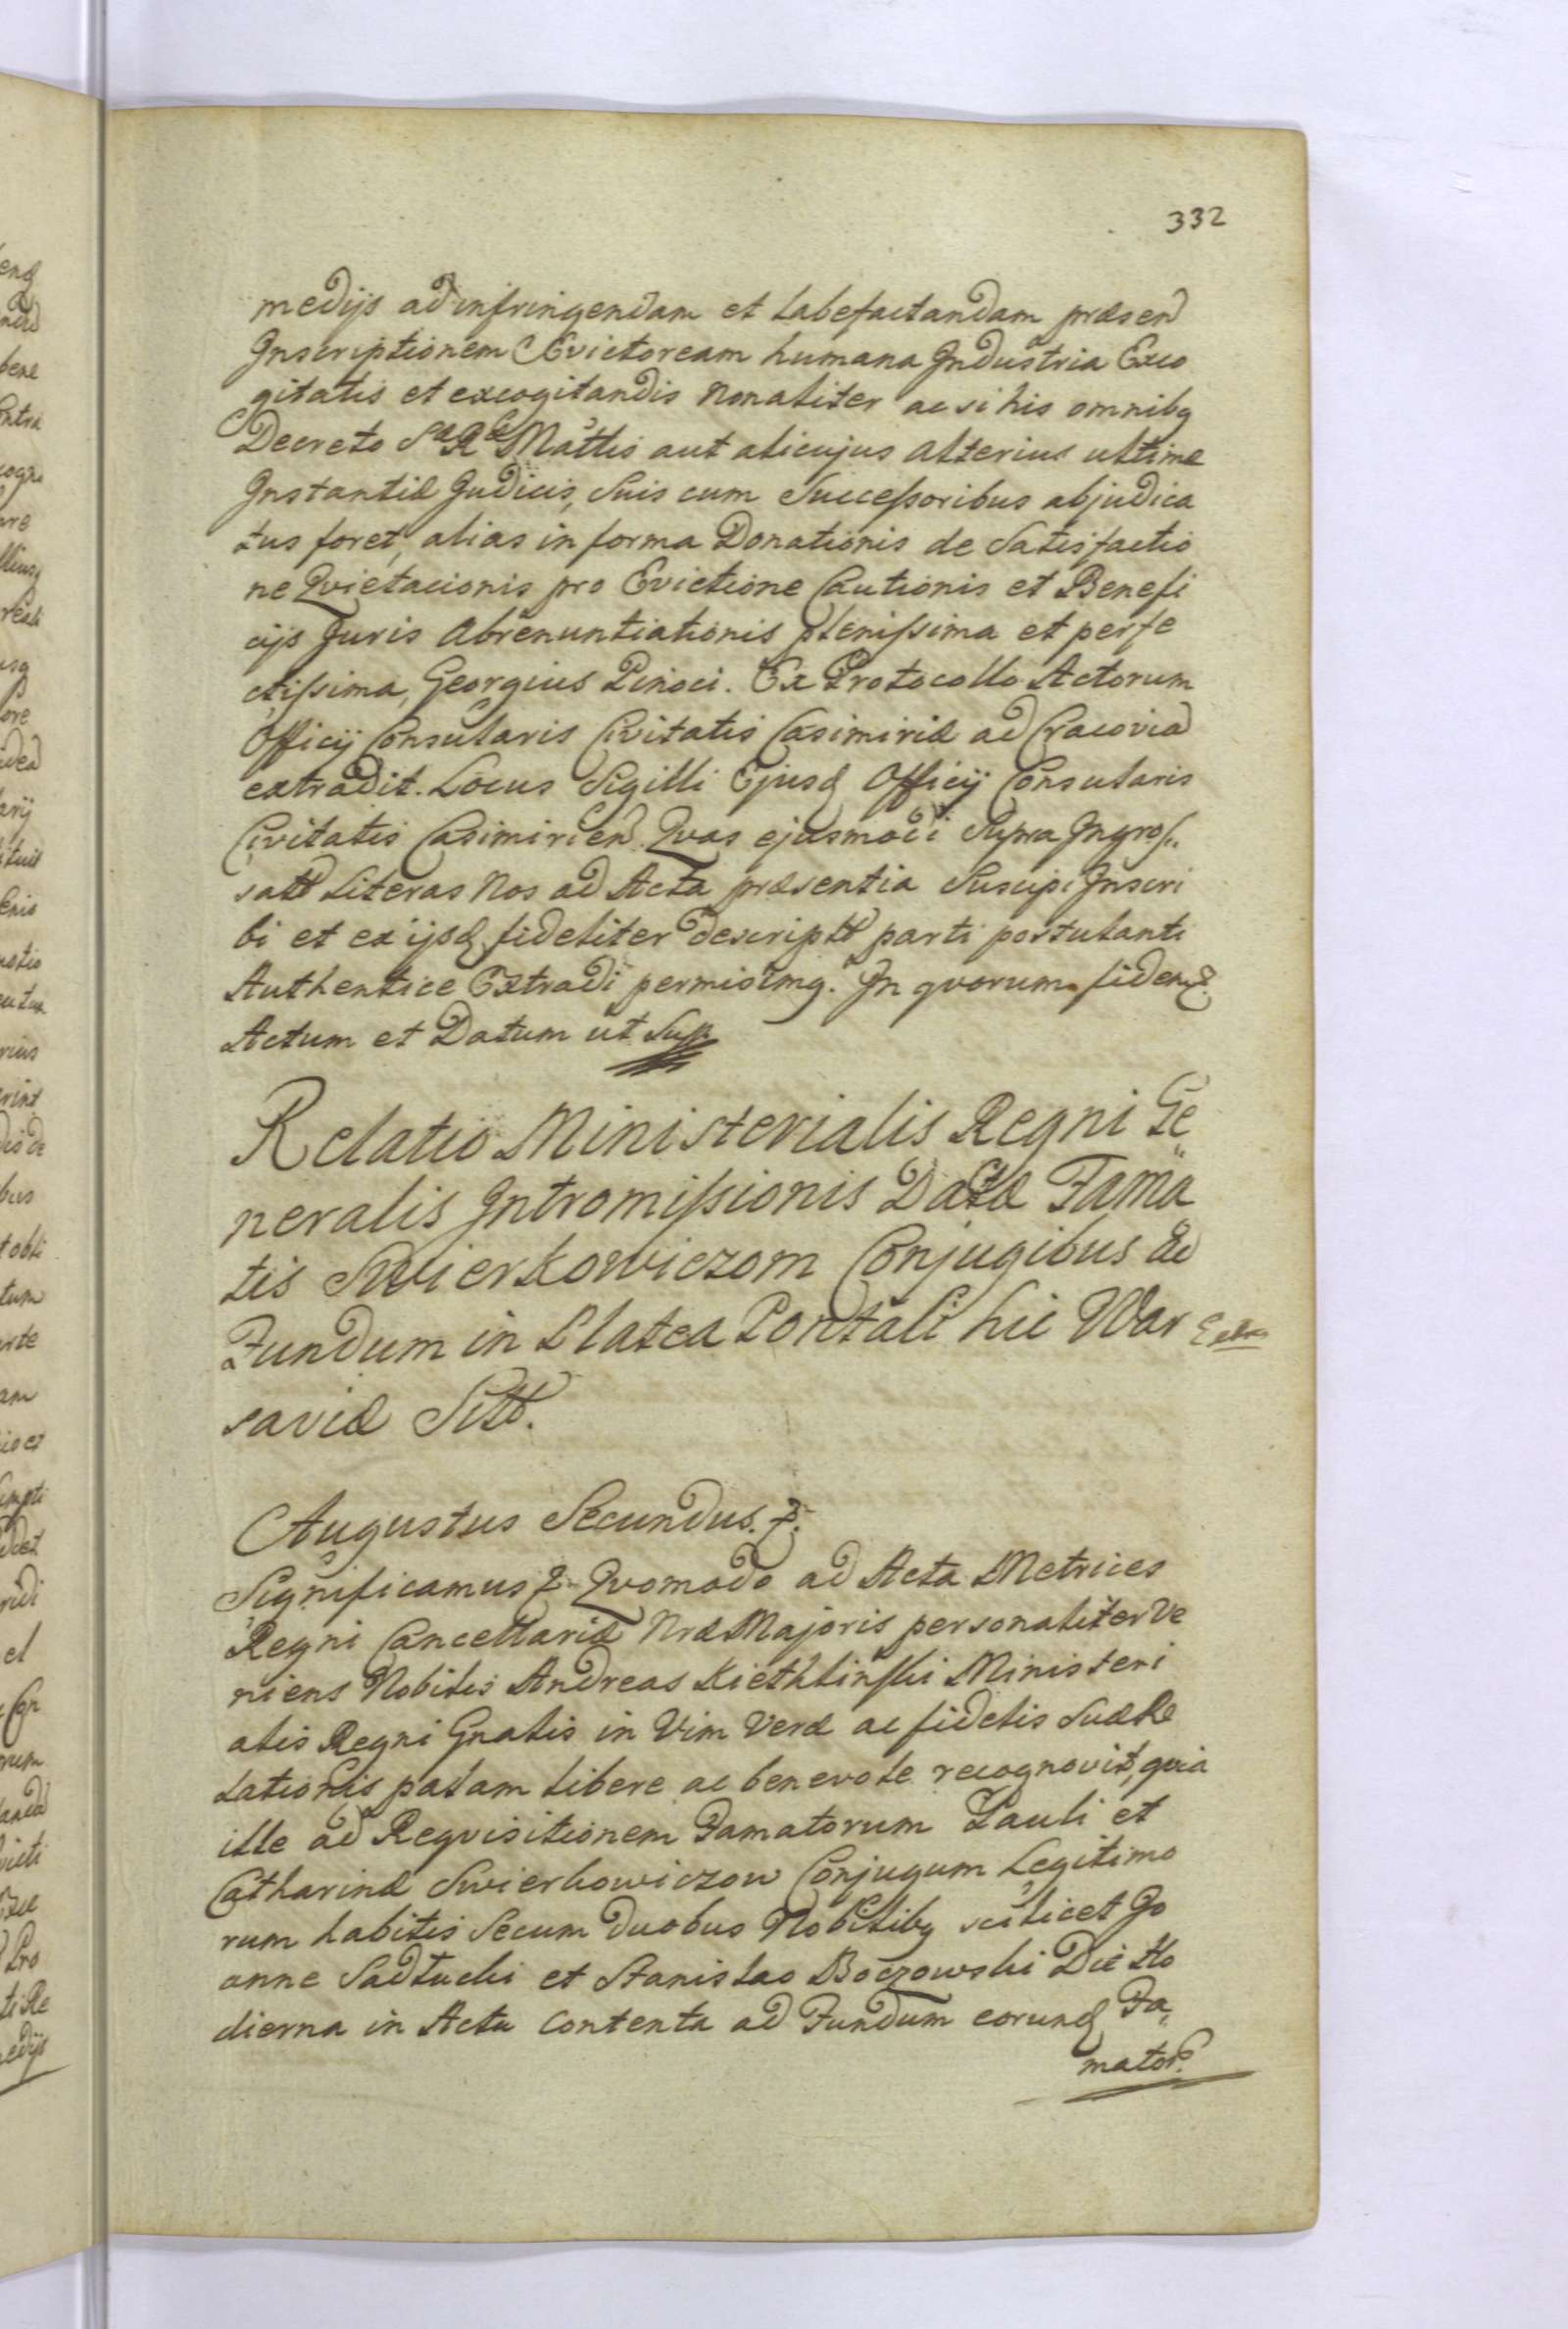 332
medijs ad infringendam et labefactandam præsen
Inscriptionem Evictoream humana Industria Exco
gitatis et excogitandis nonaliter ac si his omnibq
Decreto Sæ Ræ Mattis aut alicujus alterius ultimæ
Instantiæ Judicis, Suis cum Successoribus abjudica
tus foret, alias in forma Donationis de Satisfactio
ne Qvietacionis pro Evictione Cautionis et Benefi
cijs Juris Abrenuntiationis plenissima et perfe
ctissima, Georgius Pinoci. Ex Protocollo Actorum
Officij Consularis Civitatis Casimiriæ ad Cracovia
extradit. Locus Sigilli Ejusd Officij Consularis
Civitatis Casimirien. Qvas ejusmodi Supra Ingros„
satt Literas Nos ad Acta præsentia Suscipi Inscri
bi et ex ijsd fideliter descriptt parti postulanti
Authentice Extradi permisimq. In qvorum fidem &
Actum et Datum ut Sup
Relatio Ministerialis Regni Ge„
neralis Intromissionis Datæ Fama
tis Swierkowiczom Conjugibus ad
Fundum in Platea Pontali hic War
saviæ Sitt.
Augustus Secundus. &.
Significamus & Qvomodo ad Acta Metrices
Regni Cancellariæ Nræ Majoris personaliter Ve
niens Nobilis Andreas Kiethlinski Ministeri
alis Regni Gnalis in Vim Veræ ac fidelis Suæ Re
lationis palam libere ac benevole recognovit, qvia
ille ad Reqvisitionem Famatorum Pauli et
Catharinæ Swierkowiczow Conjugum Legitimo
rum habitis Secum duobus Nobilibq scilicet Jo
anne Sadtucki et Stanislao Boczowski Die Ho
dierna in Actu Contenta ad Fundum eorund Fa„
mator.